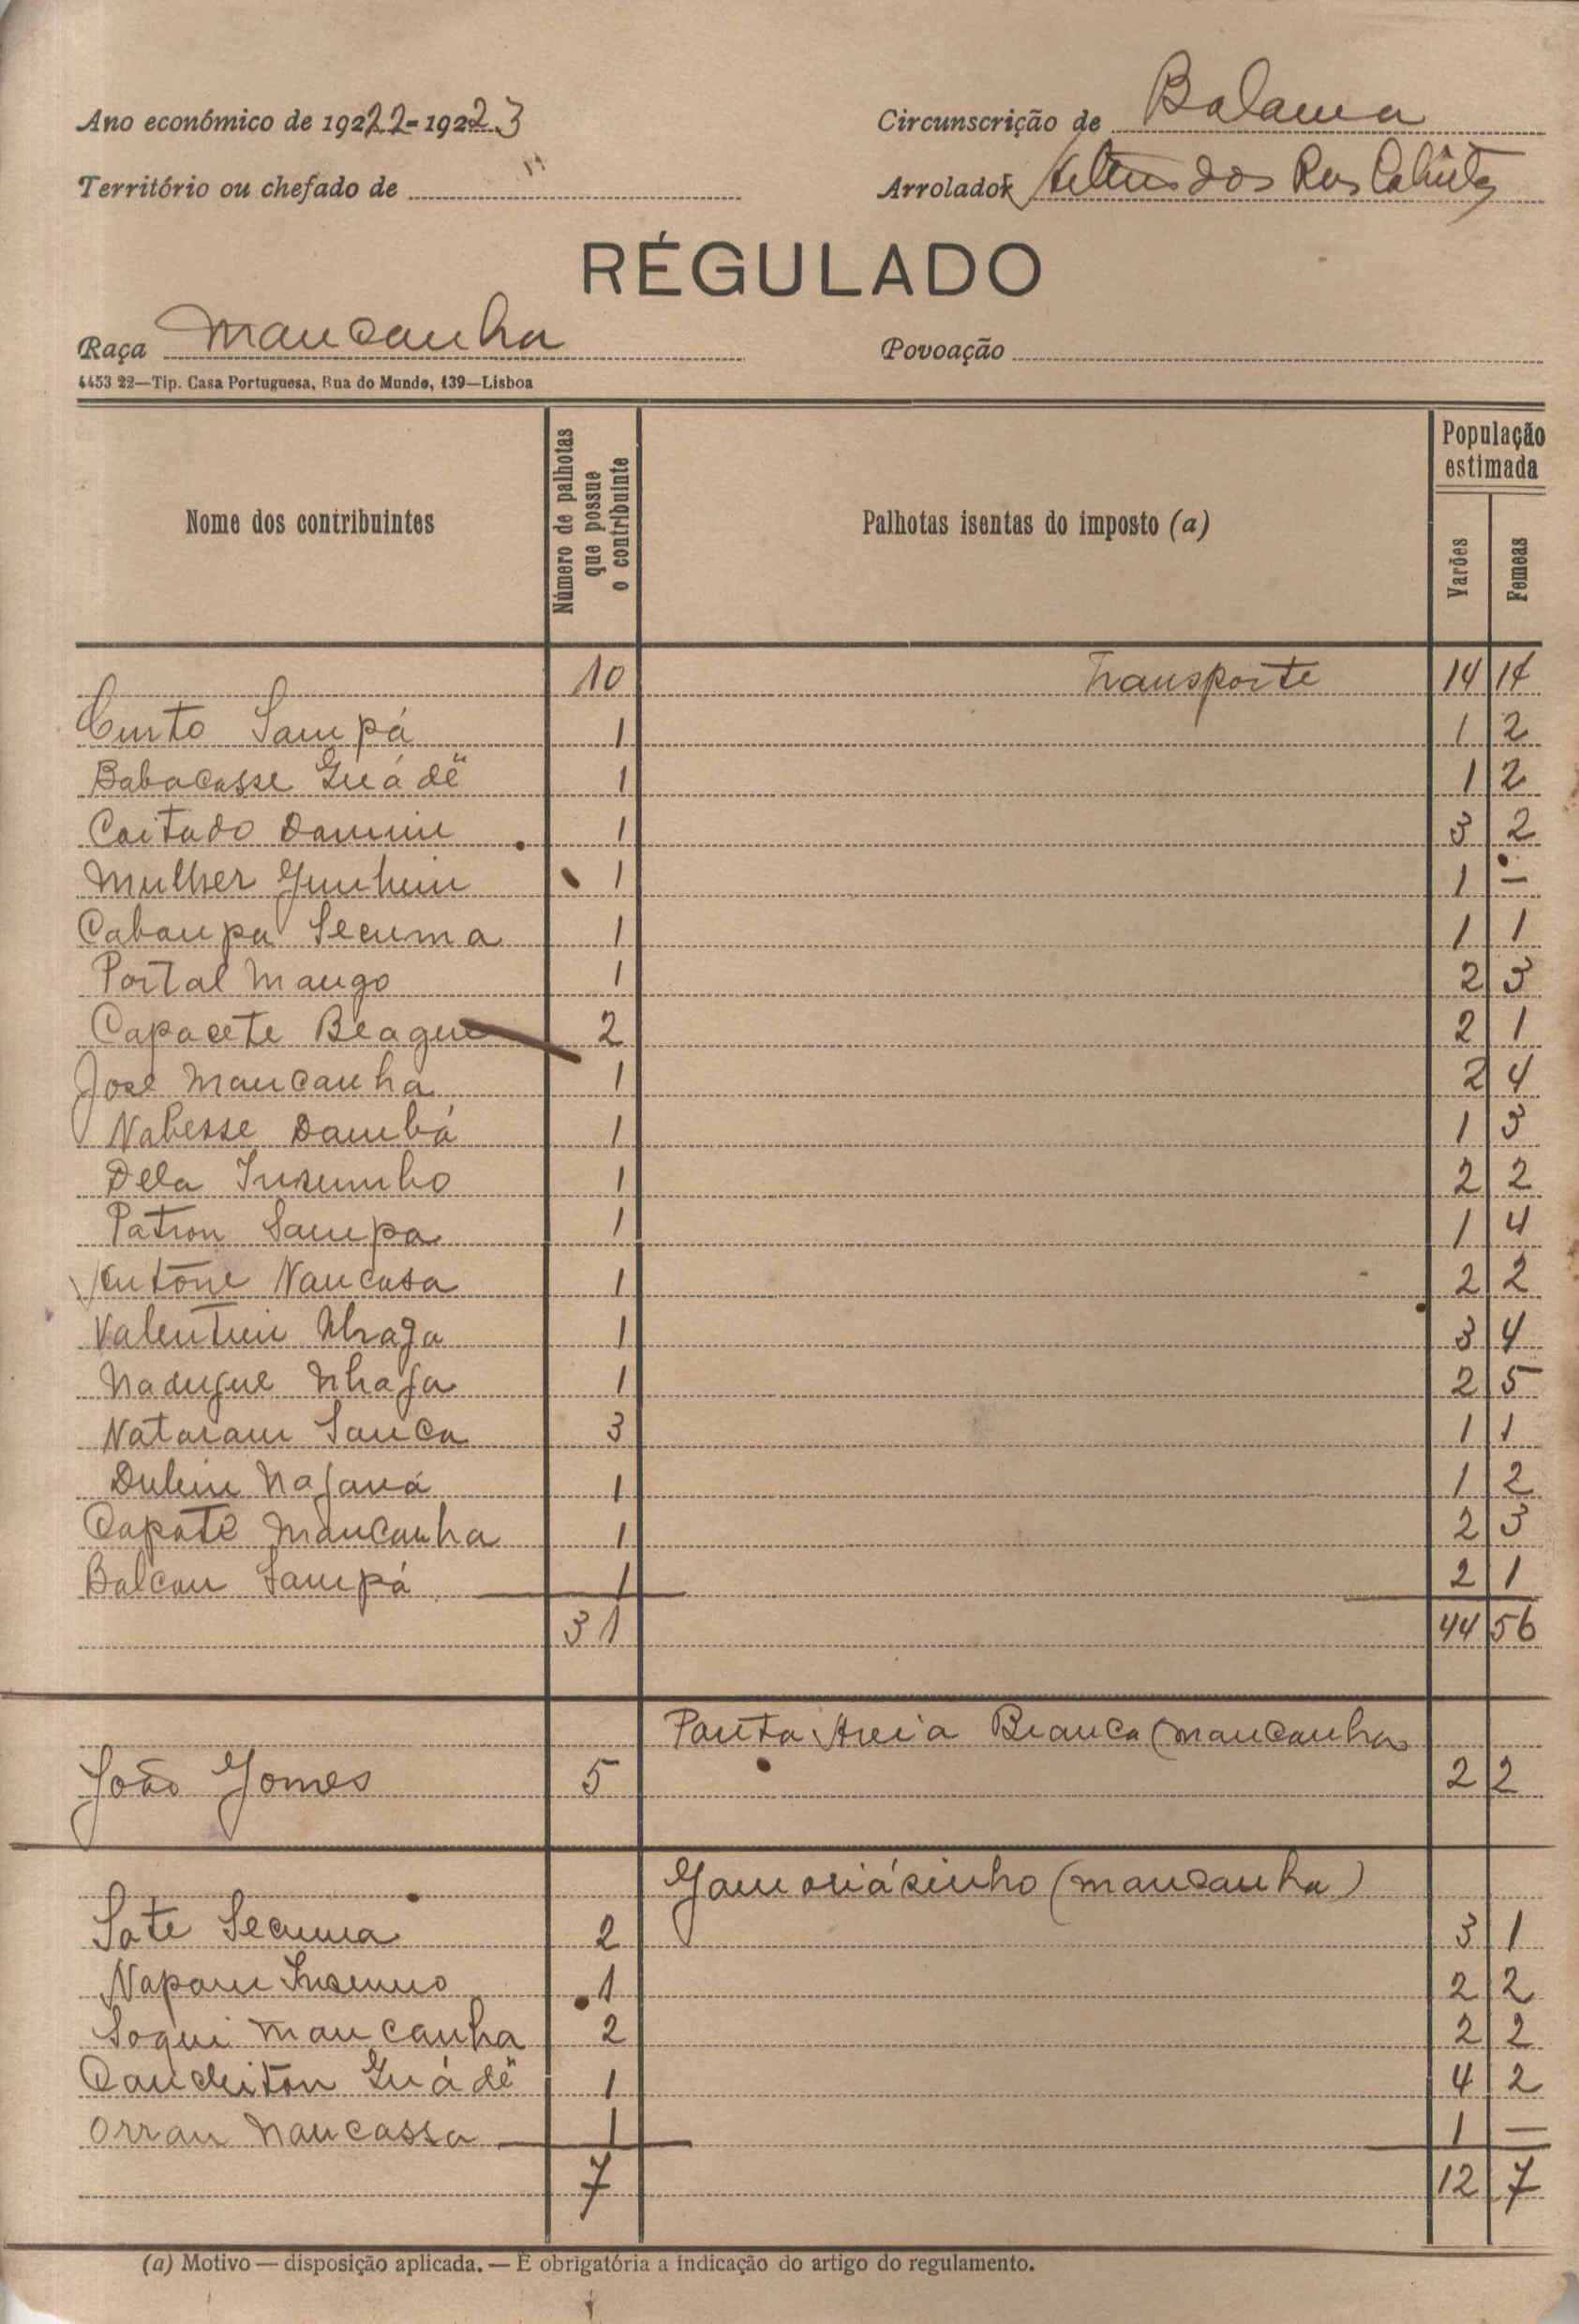 Ano económico de 1922-1923
Circunscrição de Bolama
Território ou chefado de "
Arrolador dos Reis
RÉGULADO
Raça Mancanha
Povoação
4453 22—Tip. Casa Portuguesa, Rua do Mundo, 139—Lisboa
Nome dos contribuintes
Número de palhotas que possue o contribuinte
Palhotas isentas do imposto (a)
População estimada
Varões
Femeas
10 Transporte 14 14
Curto Sampá 1 1 2
Babacasse Guádë 1 1 2
Coitado 1 3 2
Mulher 1 1 —
Cabaupa Secuma 1 1 1
Portal Mango 1 2 3
Capacete Beague 2 2 1
José Mancanha 1 2 4
Nabesse Dambá 1 1 3
Dela 1 2 2
Patron Sampa 1 1 4
Antóne Nancasa 1 2 2
Valentim Nhaga 1 3 4
Nadugue Nhaga 1 2 5
Nataram Sanca 3 1 1
1 1 2
Capoté Mancanha 1 2 3
Balcan Sampá 1 2 1
31 44 56
Ponta Areia Branca (mancanha
João Gomes 5 2 2
(mancanha)
Sate Secuma 2 3 1
1 2 2
Soqui Mancanha 2 2 2
Guádë 1 4 2
Orran Nancassa 1 1 —
7 12 7
(a) Motivo — disposição aplicada. — É obrigatória a indicação do artigo do regulamento.